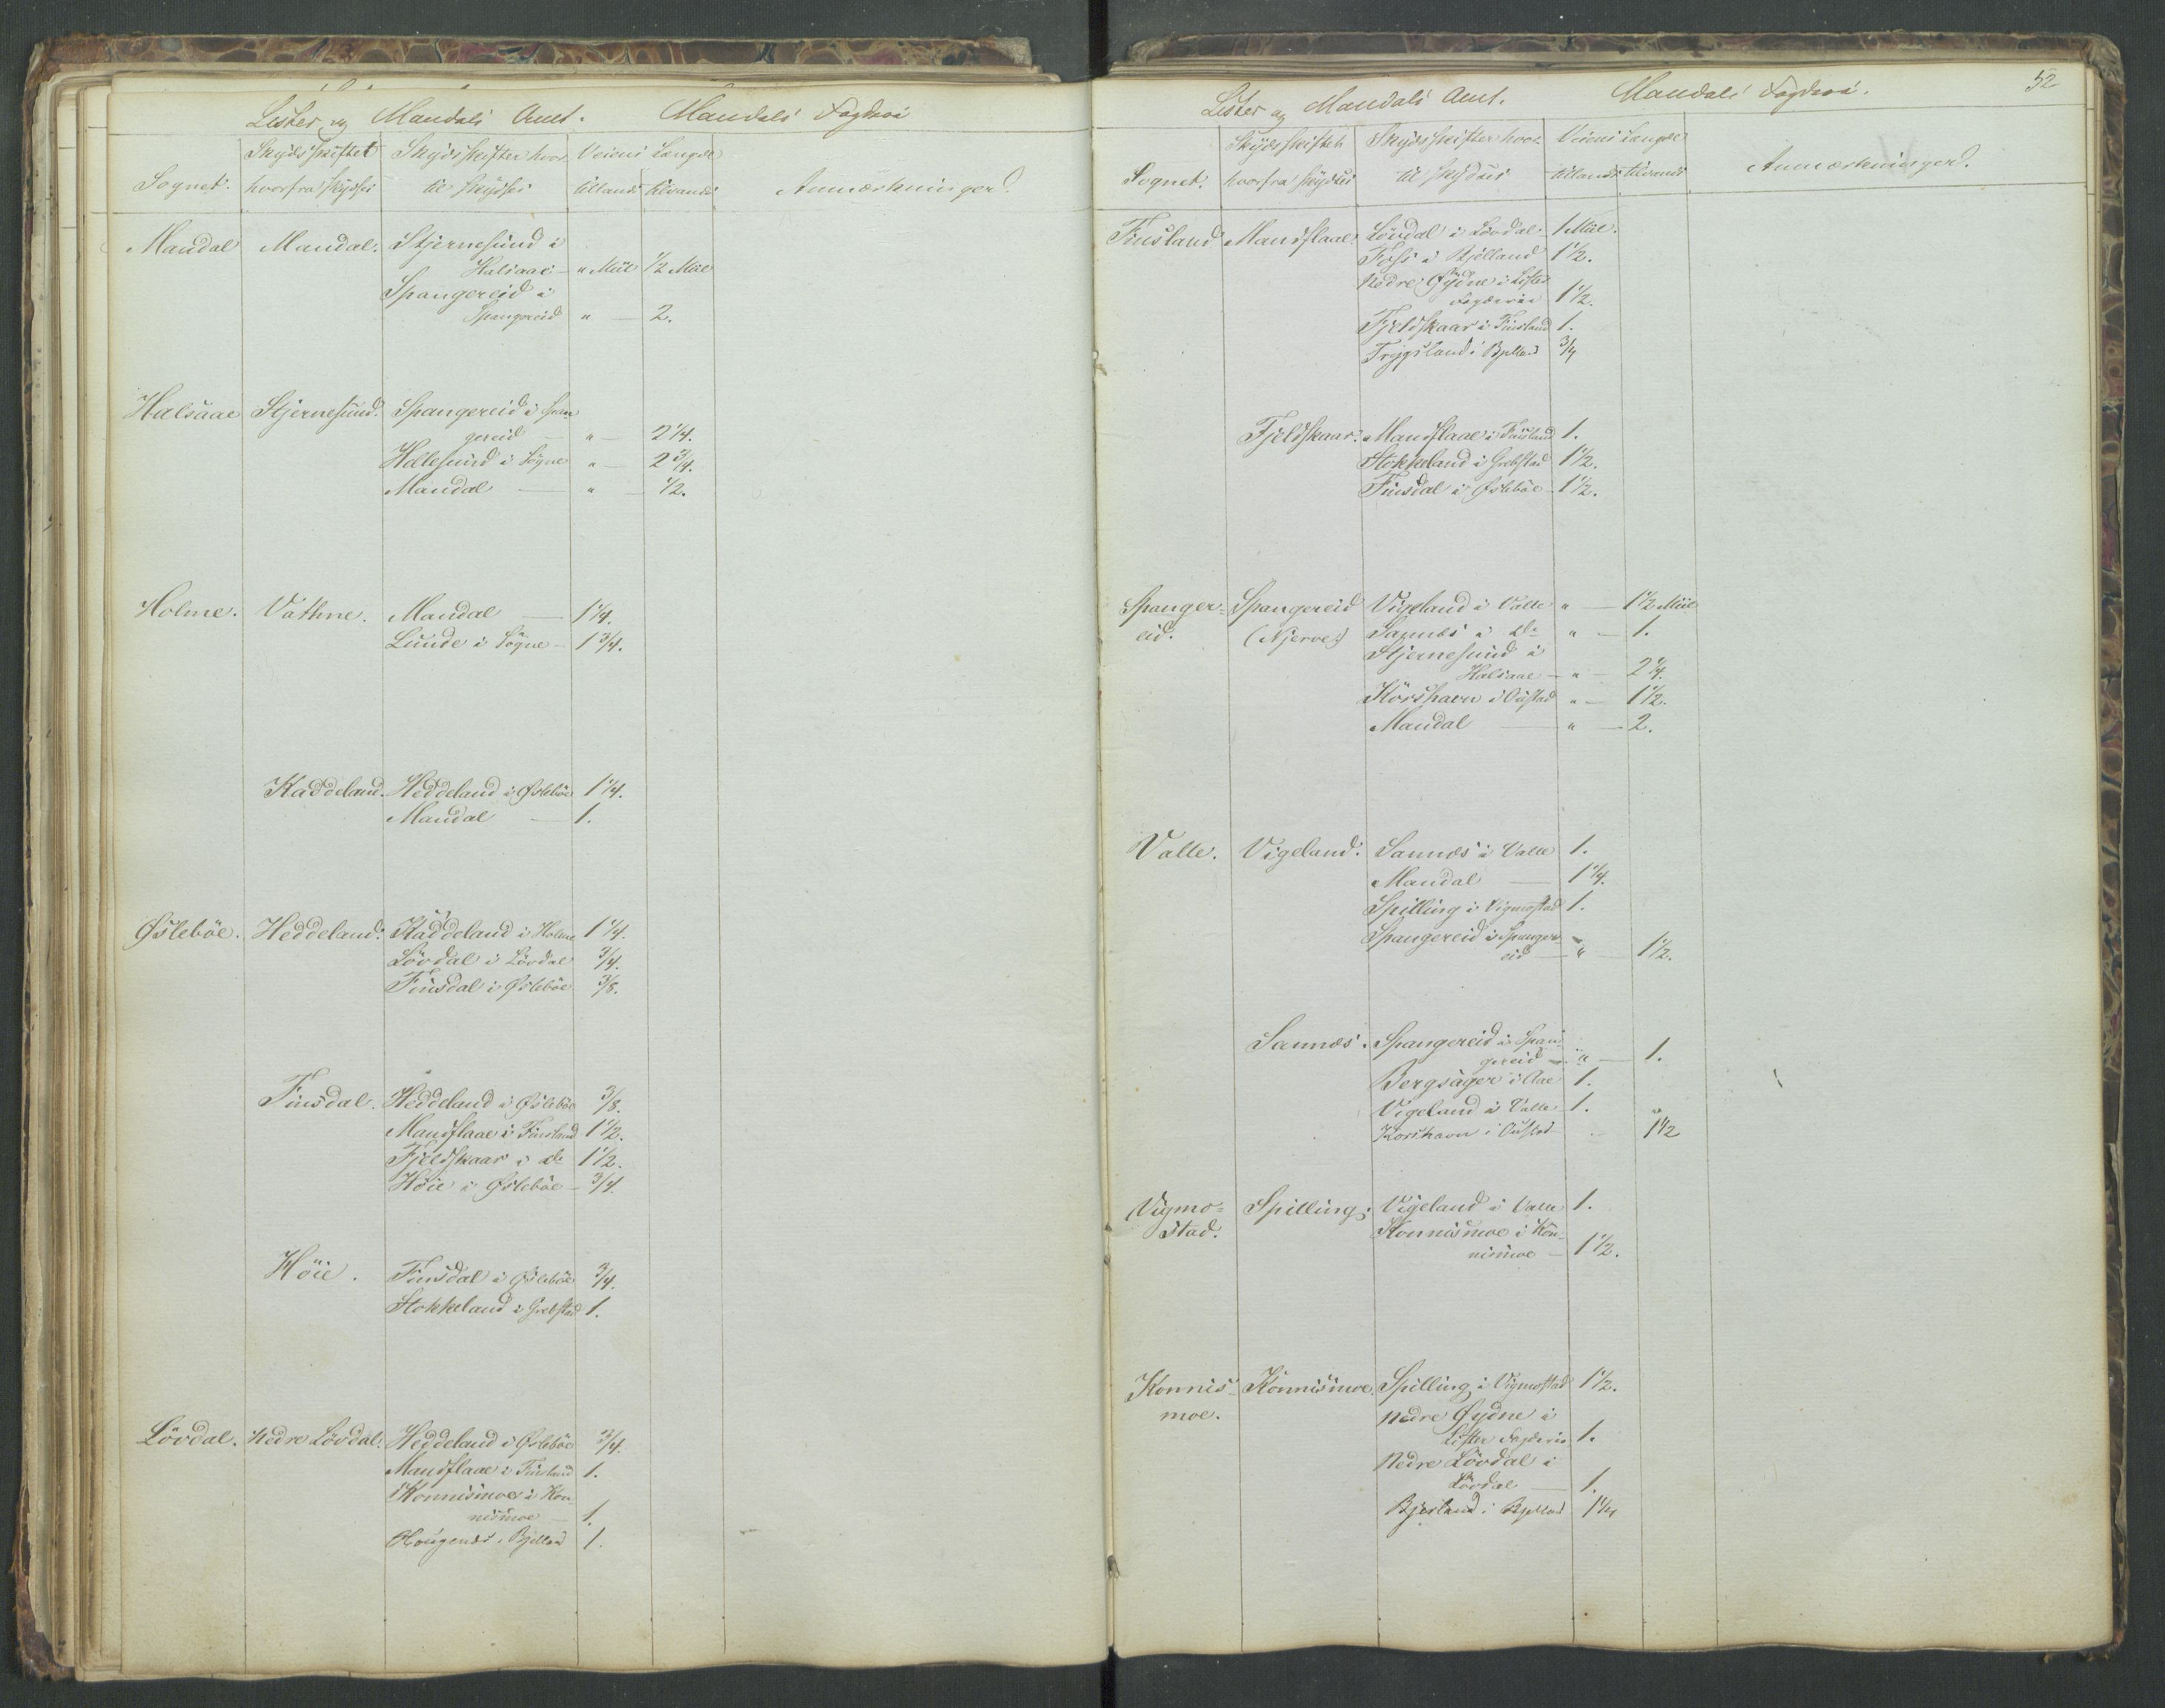 Lister og Mandals Amt. Mandals Fogderi
Sognet. Skydsskiftet hvorfra skydses Skydsskifter hvortil skydses Veiens Længde tillands tilvands Anmærkninger.
Mandal Mandal. Stjernesund i
Halsaae — " Miil ½ Miil
Spangereid i
Spangereid " — 2.
Halsaae Stjernesund. Spangereid i Span
gereid — " — 2¼.
Hellesund i Sögne " — 2¾.
Mandal — " — ½.
Holme. Vathne. Mandal — 1¼.
Lunde i Sögne — 1¾.
Kaddeland. Heddeland i Øslebøe 1¼.
Mandal — 1.
Øslebøe. Heddeland. Kaddeland i Holme 1¼.
Lövdal i Lövdal ¾.
Finsdal i Øslebøe ⅜.
Finsdal. Heddeland i Øslebøe ⅜.
Mandflaae i Finsland 1½.
Fjeldskaar i do 1½.
Höie i Øslebøe — ¾.
Höie. Finsdal i Øslebøe ¾.
Stokkeland i Grebstad 1.
Lövdal. Nedre Lövdal. Heddeland i Øslebøe ¾.
Mandflaae i Finsland 1.
Konnismoe i Kon-
nismoe — 1.
Hougenæs i Bjelland 1.
52
Lister og Mandals Amt. Mandals Fogderi.
Sognet. Skydsskiftet hvorfra skydses Skydsskifter hvortil skydses Veiens Længde tillands tilvands Anmærkninger.
Finsland Mandflaae. Lövdal i Lövdal 1 Miil.
Foss i Bjelland 1½.
Nedre Øydne i Lister
Fogderie 1½.
Fjeldskaar i Finsland 1.
Trygsland i Bjelland ¾
Fjeldskaar. Mandflaae i Finsland 1.
Stokkeland i Grebstad 1½.
Finsdal i Øslebøe 1½.
Spanger- Spangereid Vigeland i Valle " — 1½ Miil
eid. (Njerve) Sannæs i do " — 1.
Stjernesund i
Halsaae — " — 2¼.
Körshavn i Oustad " — 1½.
Mandal — " — 2.
Valle. Vigeland. Sannæs i Valle 1.
Mandal — 1¼.
Spilling i Vigmostad 1.
Spangereid i Spanger-
eid — " — 1½.
Sannæs. Spangereid i Span-
gereid — " — 1.
Bergsager i Aae 1.
Vigeland i Valle 1. "
Korshavn i Oustad 1½
Vigmo- Spilling. Vigeland i Valle 1.
stad. Konnismoe i Kon-
nismoe — 1½.
Konnis- Konnismoe. Spilling i Vigmostad 1½.
moe. Nedre Øydne i
Lister Fogderie 1.
Nedre Lövdal i
Lövdal — 1.
Bjerland i Bjelland 1¼